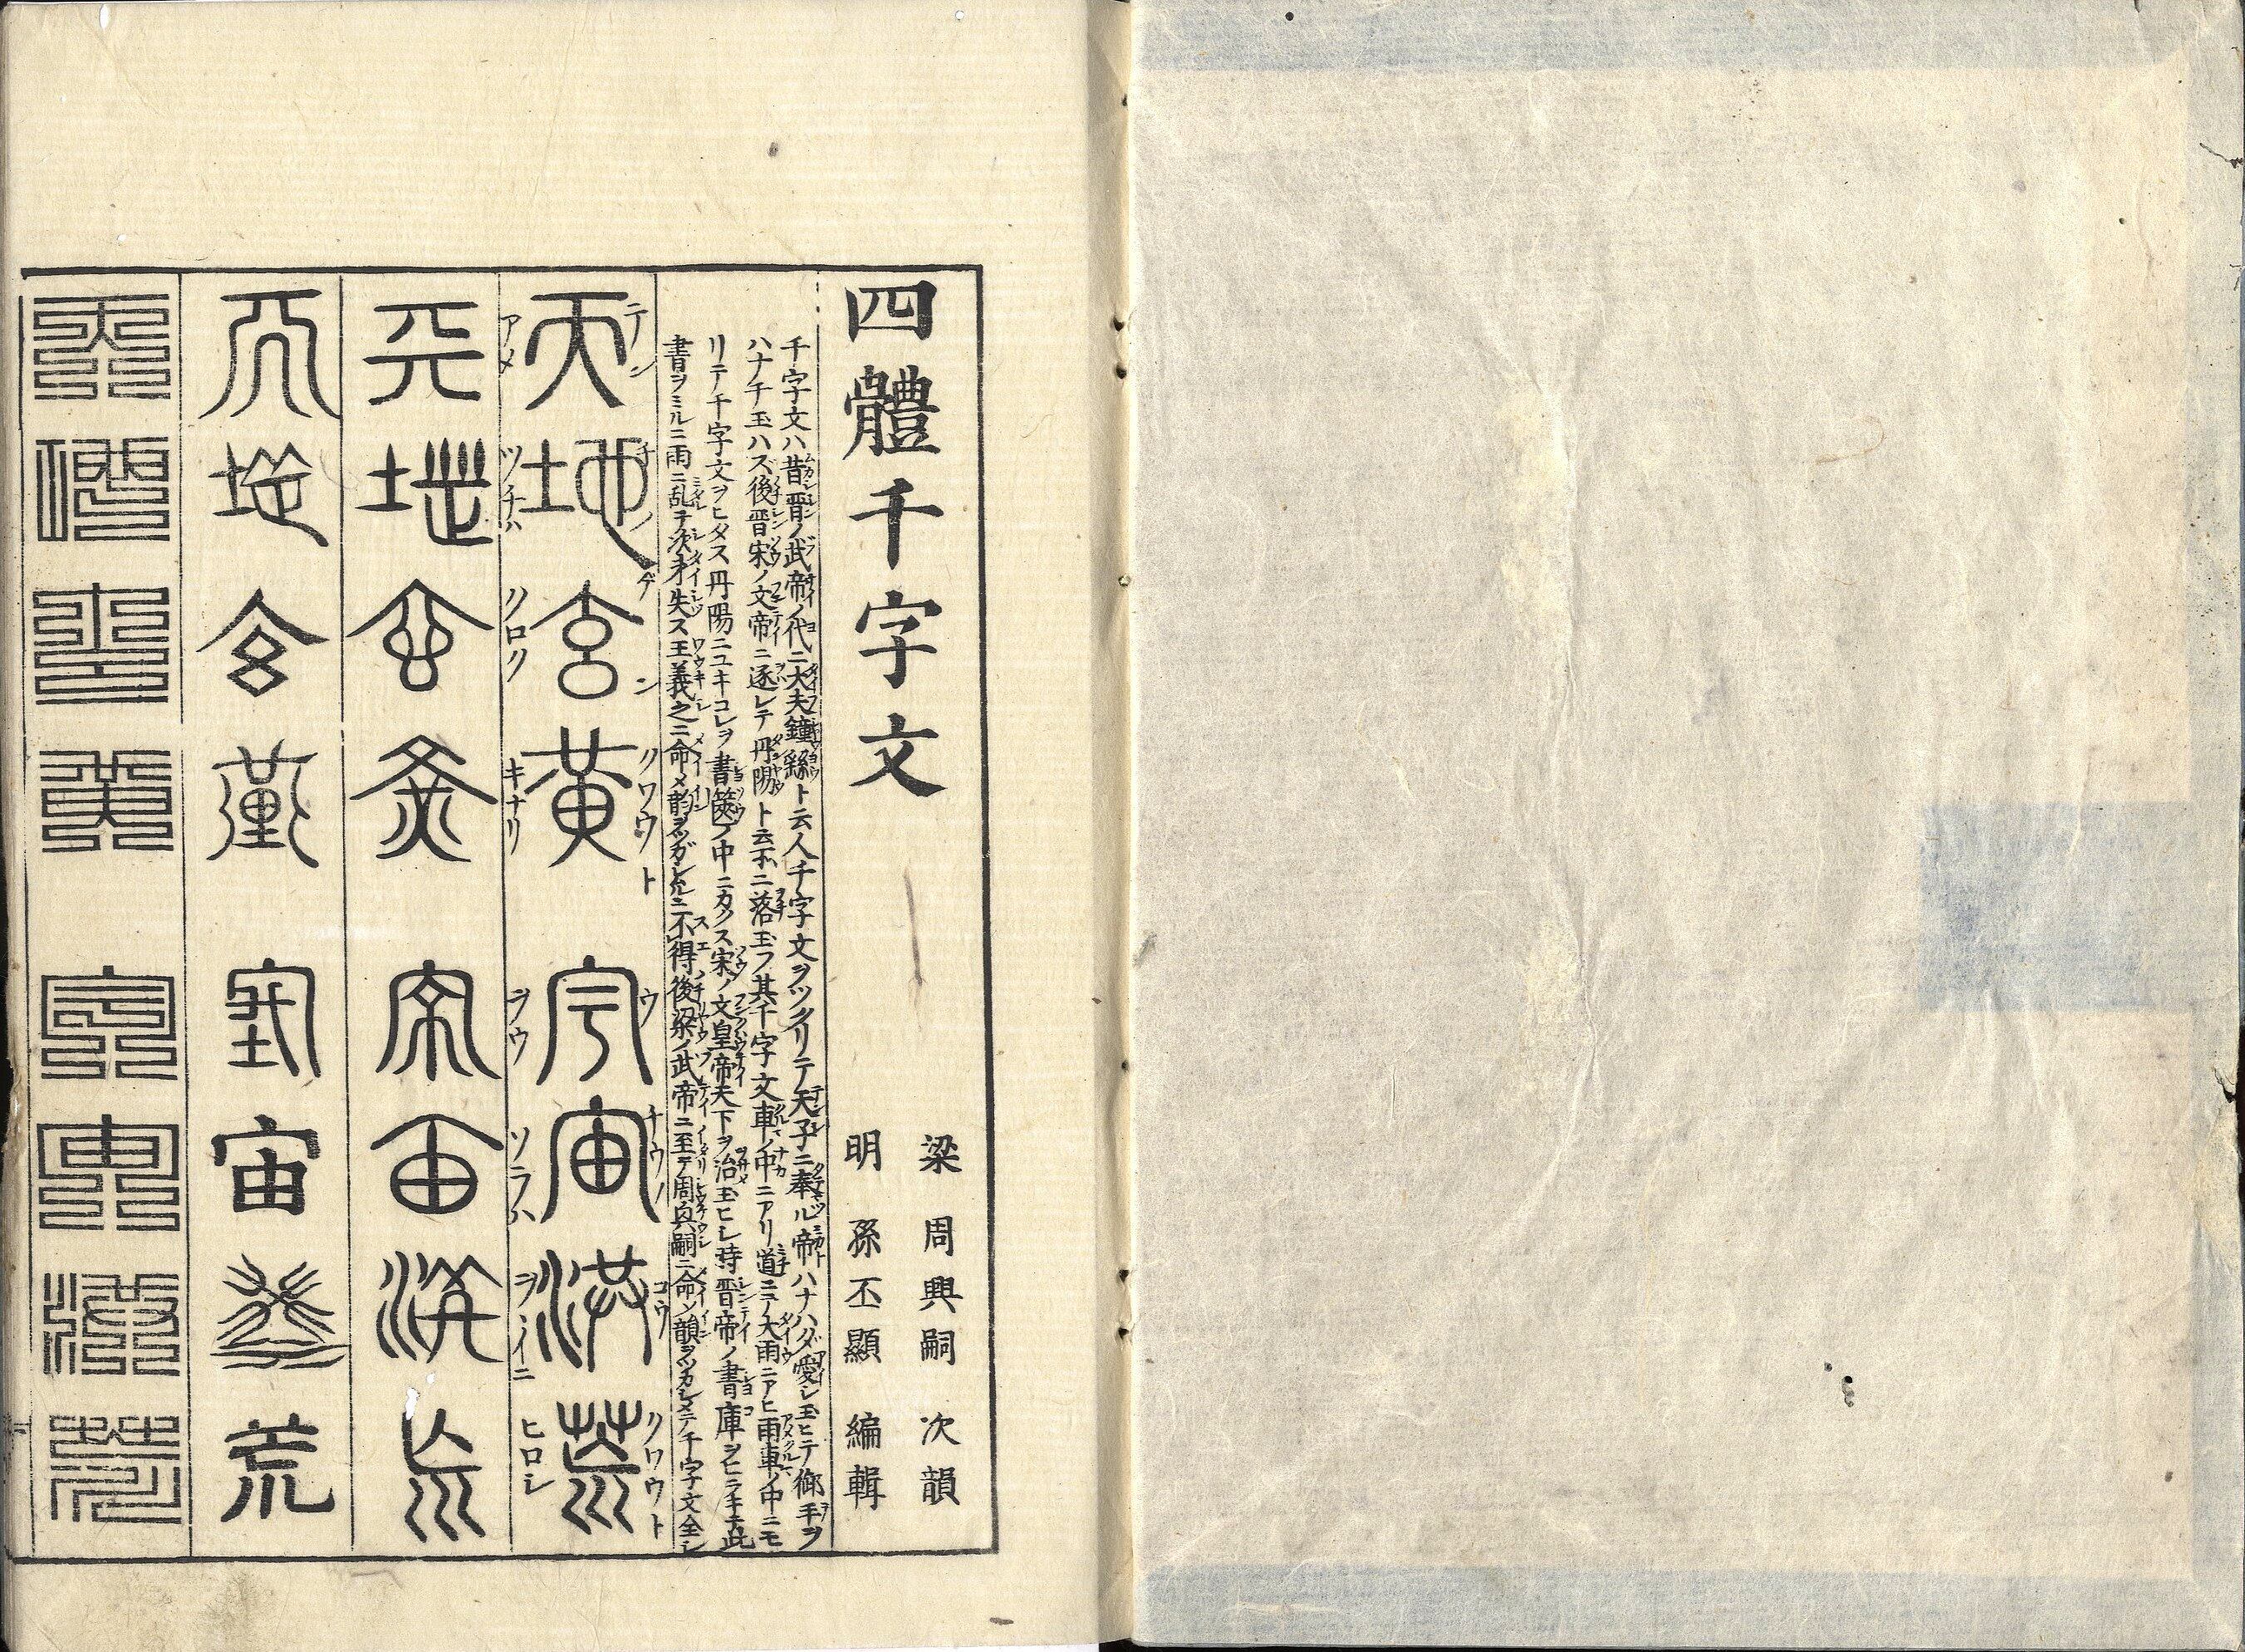 四體千字文
梁 周興嗣 次韻
明 孫丕顯 編輯
千字文ハ昔晋ノ武帝ノ代ニ大夫鐘繇ト云人千字文ヲツクリテ天子ニ奉ル帝ハナハダ愛シ玉ヒテ御手ヲ
ハナチ玉ハズ後晋宋ノ文帝ニ逐レテ丹陽ト云所ニ落玉フ其千字文車ノ中ニアリ道ニテ大雨ニアヒ雨車ノ中ニモ
リテ千字文ヲヒタス丹陽ニユキコレヲ書篋ノ中ニカクス宋ノ文皇帝天下ヲ治玉ヒシ時晋帝ノ書庫ヲヒラキテ此
書ヲミルニ雨ニ乱テ次才失ス王羲之ニ命メ韻ヲツガシムルニ不得後梁ノ武帝ニ至テ周興嗣ニ命ジ韻ヲツカシメテ千字文全シ
テンチノゲンクワウト ウチウノコウクワウト
天地玄黄 宇宙洪荒
アメツチハクロクキナリ ヲヽソラハヲヽイニヒロシ
天地玄黄 宇宙洪荒
天地玄黄 宇宙洪荒
天地玄黄 宇宙洪荒